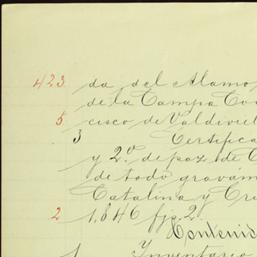 423 da, del Alamo,
de la Campa Cos
5 cisco de Valdiviel
3 Certifica
y 2º de paz de C
de todo gravam
Catalina y Cr
2 1,646 fjs. 2
Contenid
1 Inventario